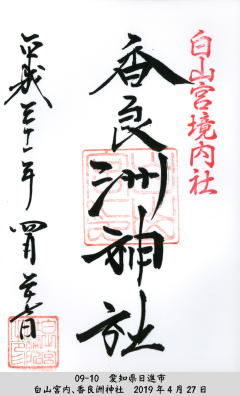 白山宮境内社
香良洲神社
平成三十一年 四月 廿七日
09-10 愛知県日進市
白山宮内、香良洲神社 2019年4月27日